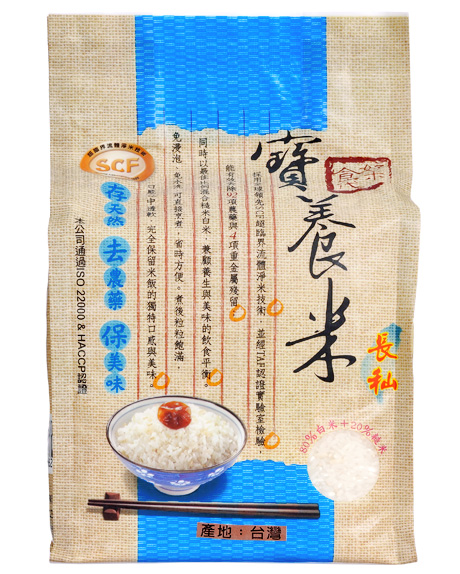 超臨界流體淨米技術
SCF
存天然
去農藥
保美味
本公司通過ISO 22000 & HACCP認證
寶養米
長秈
採用全球領先SCF超臨界流體淨米技術，並經TAF認證實驗室檢驗，
能有效去除92項農藥與4項重金屬殘留。
同時以最佳比例混合糙米白米，兼顧養生與美味的飲食平衡。
免浸泡、免水洗，可直接烹煮，省時方便。煮後粒粒飽滿，
口感Q中適軟，完全保留米飯的獨特口感與美味。
80%白米+20%糙米
產地：台灣